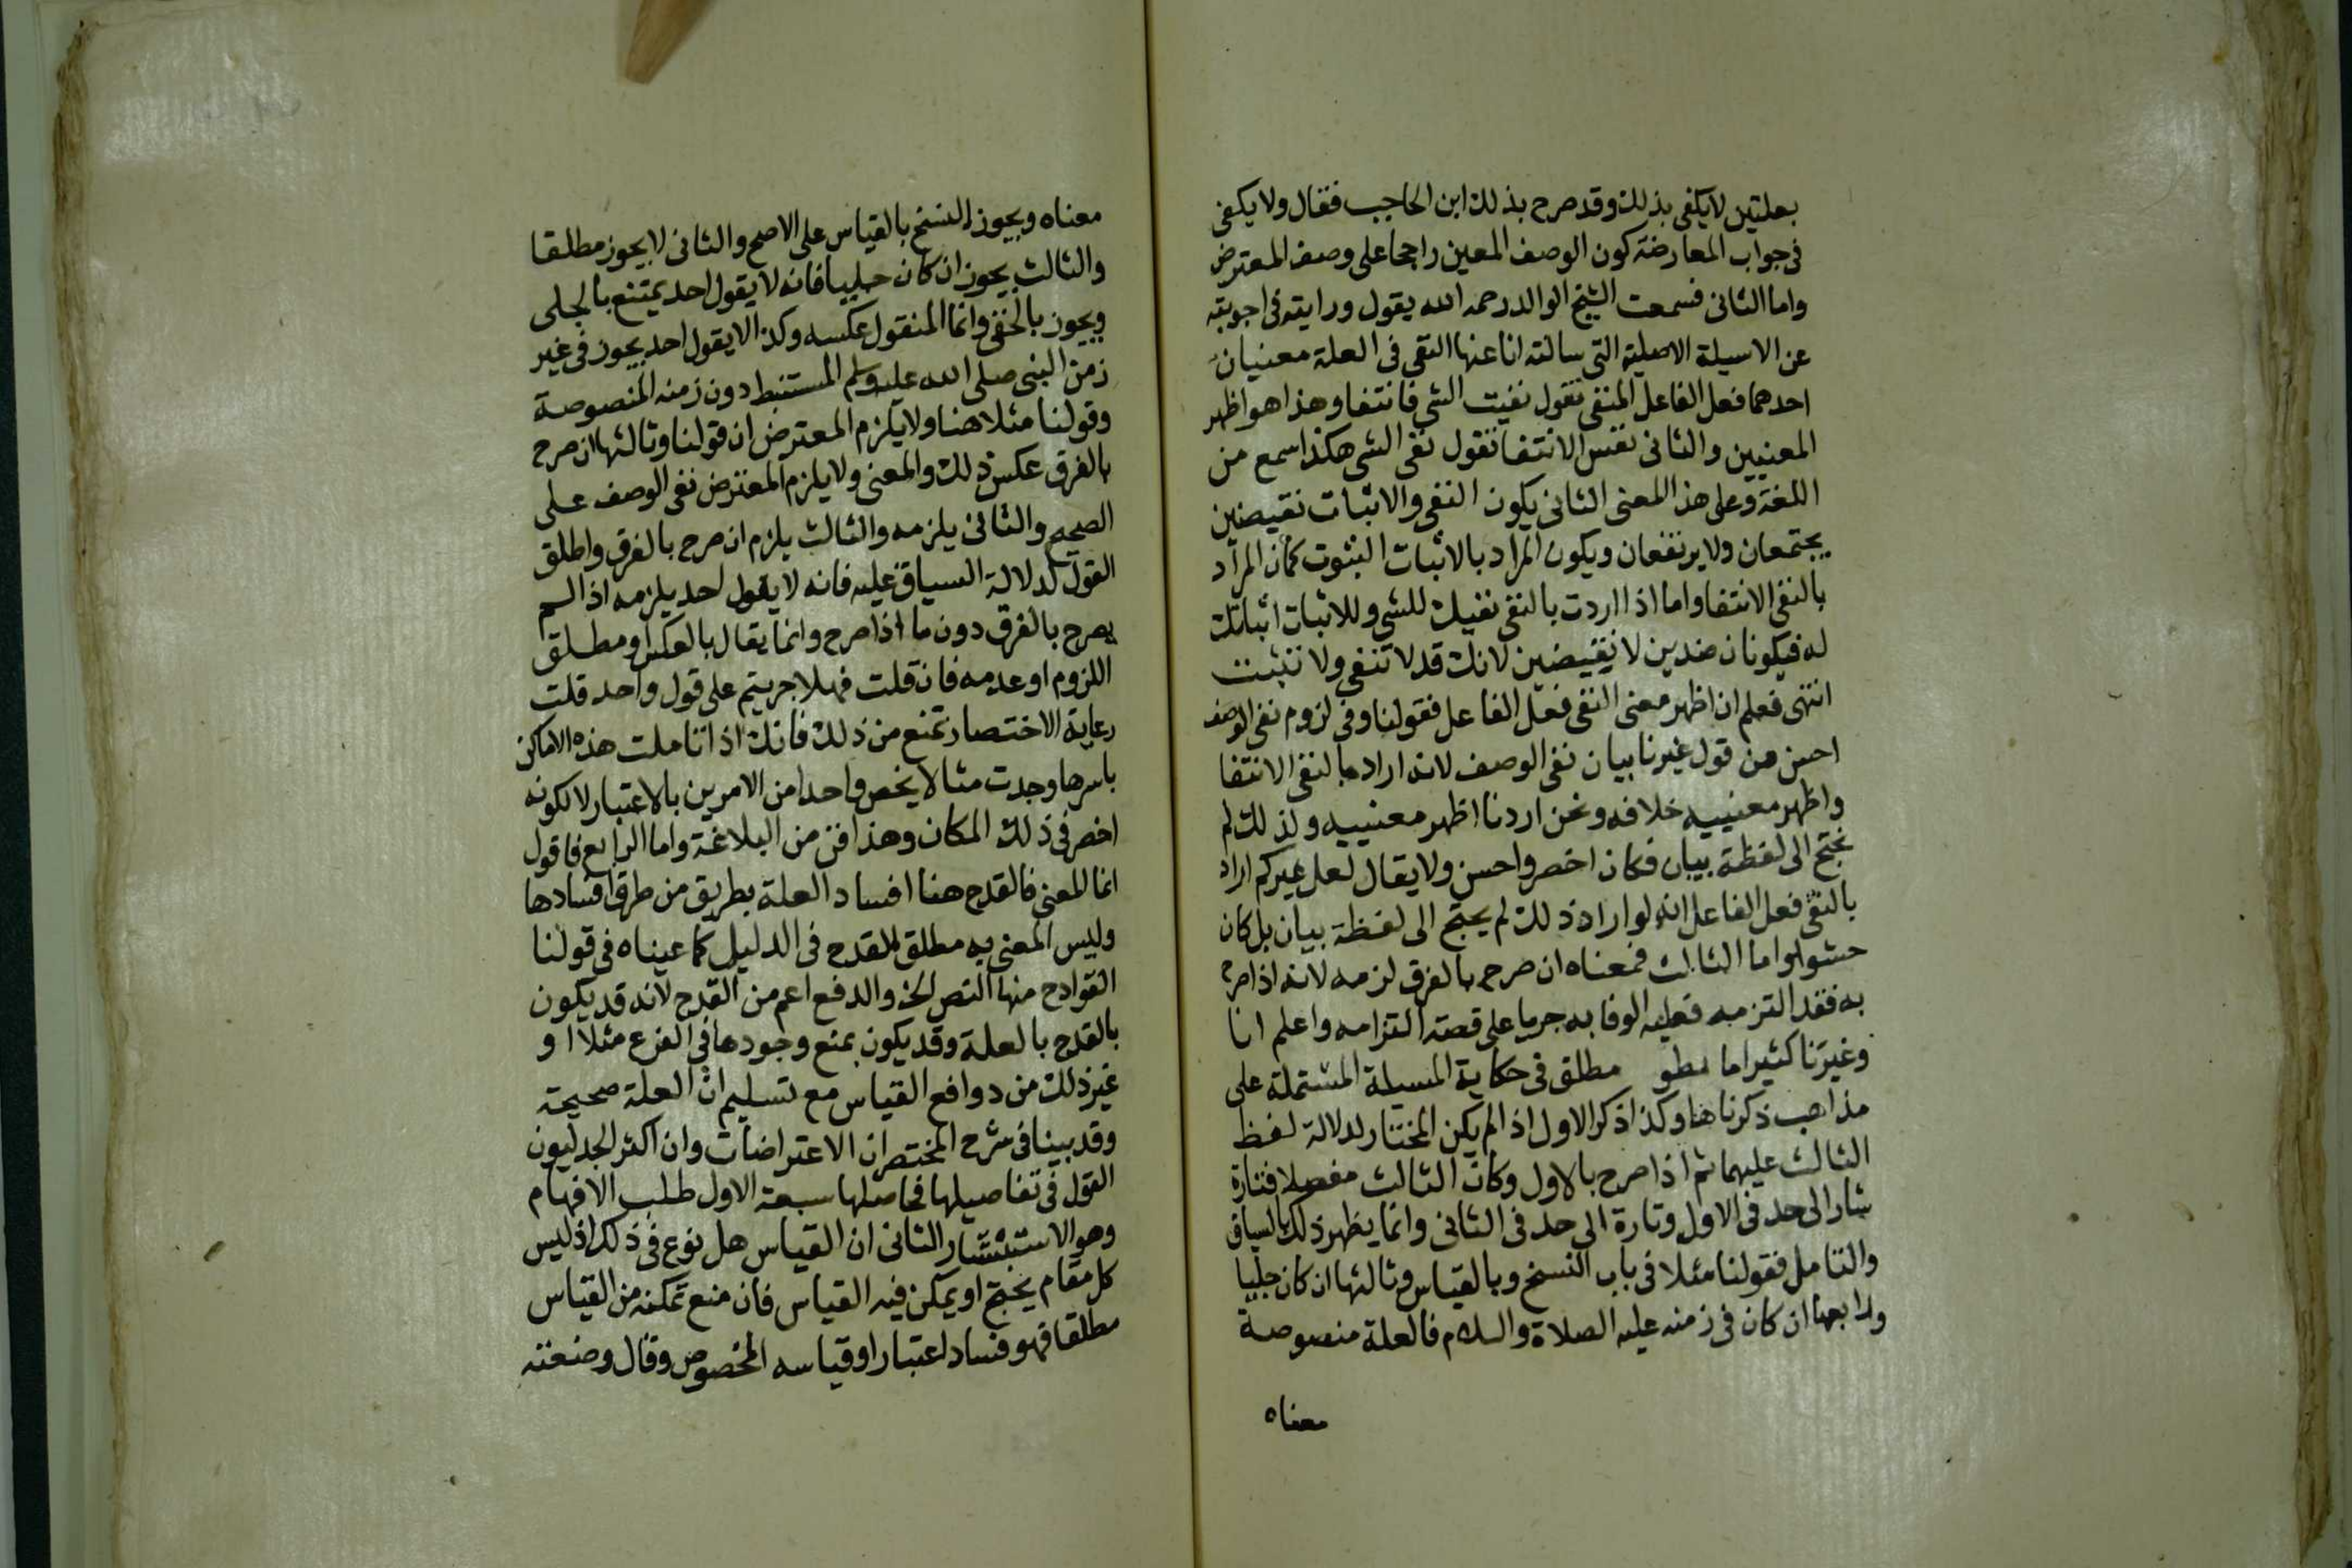 بعلتين لا يكفى بذلك وقد صرح بذلك ابن الحاجب فقال ولا يكفى
فى جواب المعارضة كون الوصف المعين راجحا على وصف المعترض
واما الثانى فسمعت الشيخ الوالد رحمه الله يقول ورايته فى اجوبته
عن الاسيلة الاصلية التى سالته انا عنها النقى فى العلة معنيان
احدهما فعل الفاعل المنفى تقول نفيت الشى فانتفا وهذا هو اظهر
المعنيين والثانى نفس الانتفا تقول نفى الشى هكذا سمع من
اللغة وعلى هذا المعنى الثانى يكون النفى والاثبات نقيضين
يجتمعان ولا يرتفعان ويكون المراد بالاثبات الثبوت كما ان المراد
بالنفى الانتفا واما اذا اردت بالنفى نفيك للشى وللاثبات اثباتك
له فيكونان ضدين لا نقيضين لانك قد لا تنفى ولا تثبت
انتهى فعلم ان اظهر معنى النفى فعل الفاعل فقولنا وفى لزوم نفى الوصف
احسن من قول غيرنا بيان نفى الوصف لانه اراد بالنفى الانتفا
واظهر معنييه خلافه ونحن اردنا اظهر معنييه ولذلك لم
نحتج الى لفظة بيان فكان اخصر واحسن ولا يقال لعل غيركم اراد
بالنفى فعل الفاعل انه لو اراد ذلك لم يحتج الى لفظة بيان بل كان
حشوا واما الثالث فمعناه ان صرح بالفرق لزمه لانه اذا صرح
به فقد التزمه فعليه الوفا به جريا على قصة التزامه واعلم انا
وغيرنا كثيرا ما مطلق فى حكاية المسيلة المشتملة على
مذاهب ذكرناها وكذا ذكر الاول اذ الم يكن المختار لدلالة لفظ
الثالث عليهما ثم اذا صرح بالاول وكان الثالث مفصلا فتارة
شار الى حد فى الاول وتارة الى حد فى الثانى وانما يظهر ذلك بالسياق
والتامل فقولنا مثلا فى باب النسخ وبالقياس وثالثها ان كان جليا
ورابعها ان كان فى زمنه عليه الصلاة والسلام فالعلة منصوصة
معناه
معناه ويجوز النسخ بالقياس على الاصح والثانى لا يجوز مطلقا
والثالث يجوز ان كان جليا فانه لا يقول احد يمتنع بالجلى
ويجوز بالخفى وانما المنقول عكسه وكذا لا يقول احد يجوز فى غير
زمن النبى صلى الله عليه وسلم المستنبط دون زمنه المنصوصة
وقولنا مثلا هنا ولا يلزم المعترض ان قولنا وثالثها ان صرح
بالفرق عكس ذلك والمعنى ولا يلزم المعترض نفى الوصف على
الصحيح والثانى يلزمه والثالث يلزم ان صرح بالفرق واطلق
القول لدلالة السياق عليه فانه لا يقول احد يلزمه اذا لم
يصرح بالفرق دون ما اذا صرح وانما يقال بالعكس او مطلق
اللزوم او عدمه فان قلت فهلا جريتم على قول واحد قلت
رعاية الاختصار تمنع من ذلك فانك اذا تاملت هذه الاماكن
باسرها وجدت مثالا يخص واحدا من الامرين بالاعتبار لا لكونه
اخصر فى ذلك المكان وهذا فن من البلاغة واما الرابع فاقول
انما المعنى فالقدح هنا افساد العلة بطريق من طرق افسادها
وليس المعنى به مطلق القدح فى الدليل كما عيناه فى قولنا
القوادح منها النص الخ والدفع اعم من القدح لانه قد يكون
بالقدح بالعلة وقد يكون بمنع وجودها فى الفرع مثلا او
غير ذلك من دوافع القياس مع تسليم ان العلة صحيحة
وقد بينا فى شرح المختصر ان الاعتراضات وان اكثر الجدليون
القول فى تفاصيلها فحاصلها سبعة الاول طلب الافهام
وهو الاستبشار الثانى ان القياس هل نوع فى ذلك اذ ليس
كل مقام يحتج او يمكن فيه القياس فان منع تمكنه من القياس
مطلقا فهو فساد اعتبار او قياسه المخصوص وقال وضعته